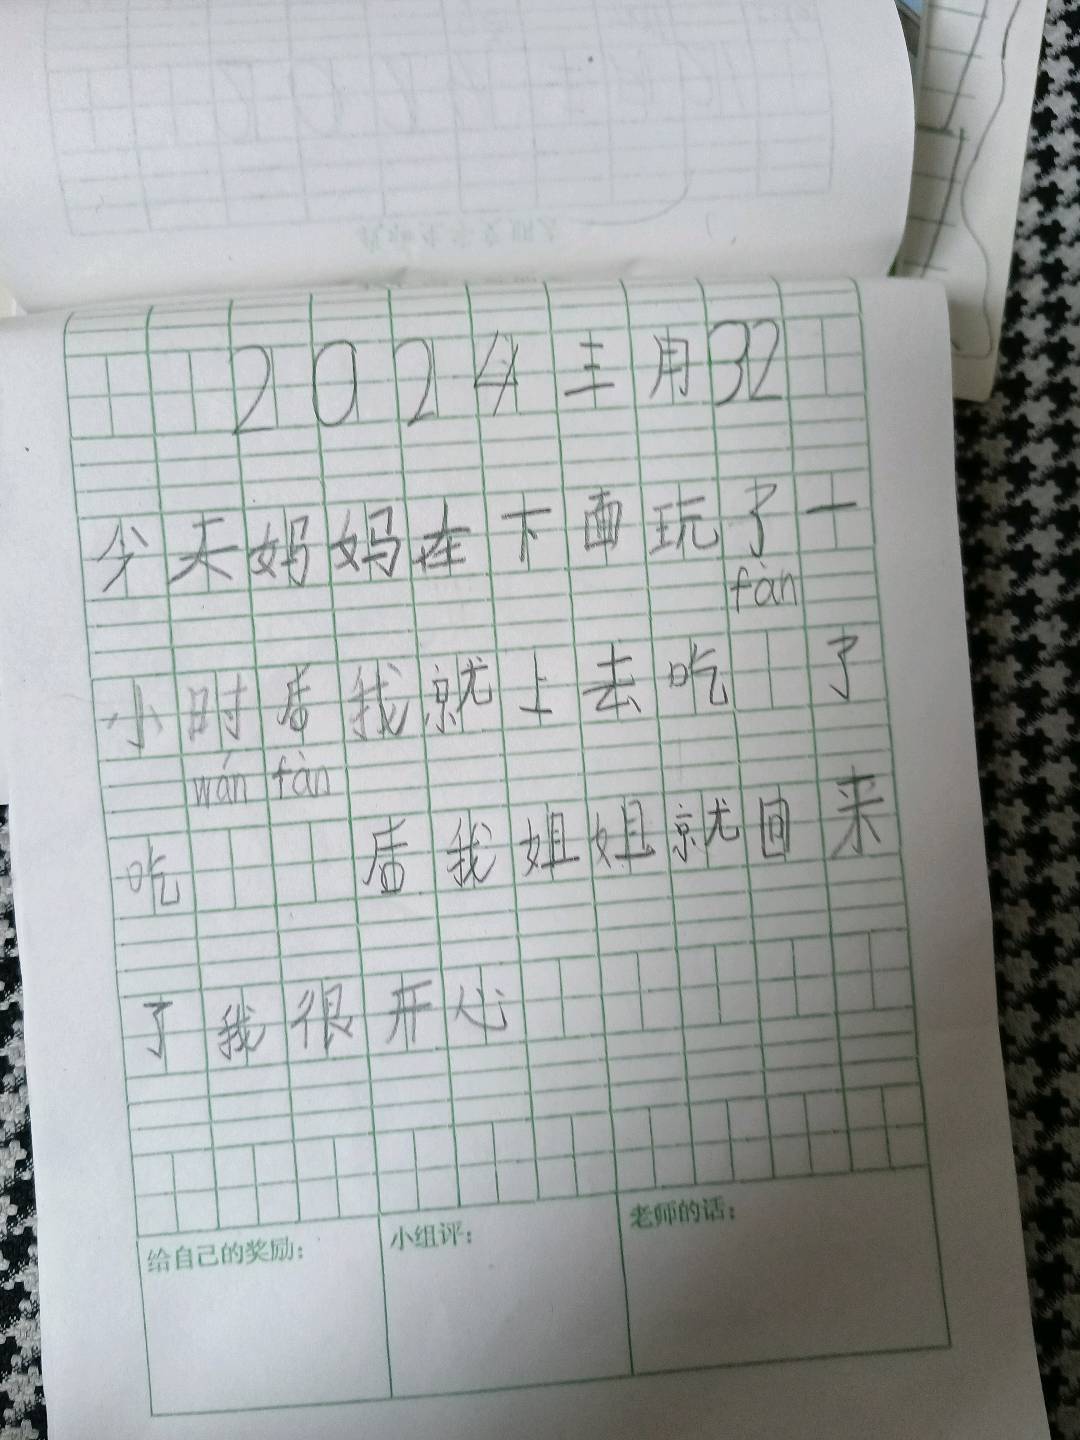 2024三月32
今天妈妈在下面玩了一
fàn
小时后我就上去吃 了
wán fàn
吃 后我姐姐就回来
了我很开心
给自己的奖励：
小组评：
老师的话：